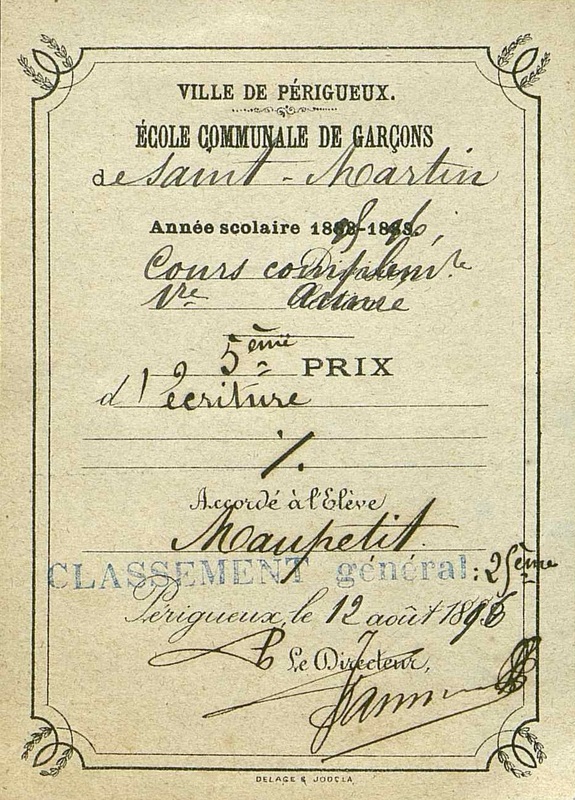 VILLE DE PÉRIGUEUX.
ÉCOLE COMMUNALE DE GARÇONS
de Saint-Martin
Année scolaire 18
Cours complém.re
1re Année
5ème PRIX
d'écriture
Accordé à l'Elève
Maupetit
CLASSEMENT général: 25ème
Périgueux, le 12 août 1896
Le Directeur,
DELAGE & JOUCLA